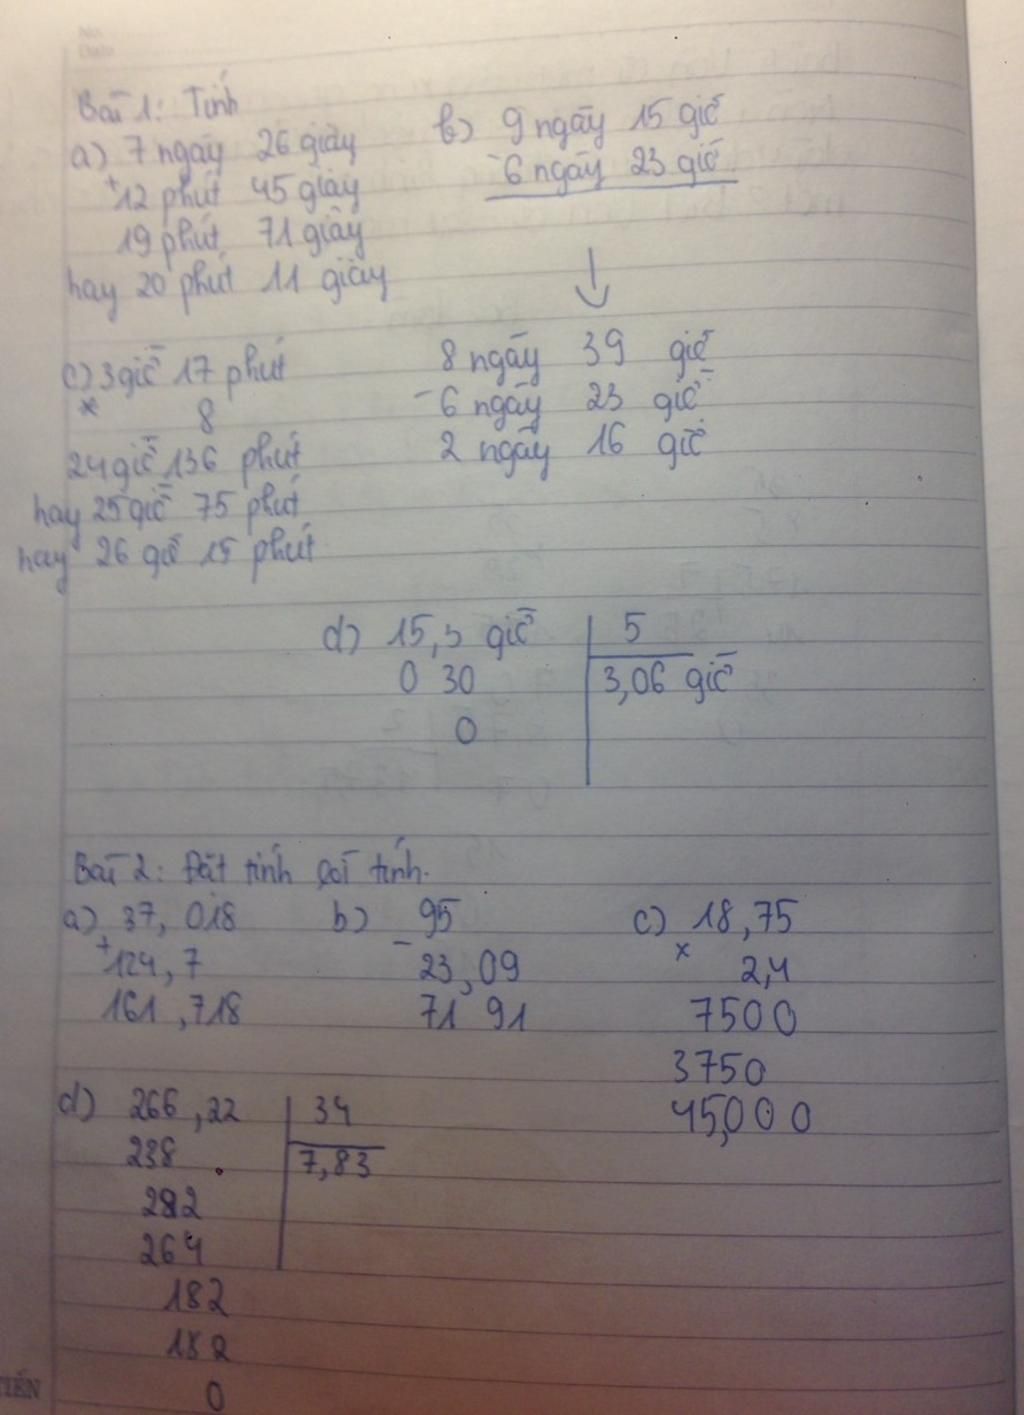 No.
Date
Bài 1: Tính
a) 7 ngày 26 giây
+ 12 phút 45 giây
19 phút 71 giây
hay 20 phút 11 giây
b) 9 ngày 15 giờ
- 6 ngày 23 giờ
↓
8 ngày 39 giờ
- 6 ngày 23 giờ
2 ngày 16 giờ
c) 3 giờ 17 phút
x 8
24 giờ 136 phút
hay 25 giờ 75 phút
hay 26 giờ 15 phút
d) 15,3 giờ | 5
0 30 3,06 giờ
0
Bài 2: Đặt tính rồi tính.
a) 37,018
+ 124,7
161,718
b) 95
- 23,09
71 91
c) 18,75
x 2,4
7500
3750
45,000
d) 266,22 | 34
238 7,83
282
264
182
182
0
TIẾN